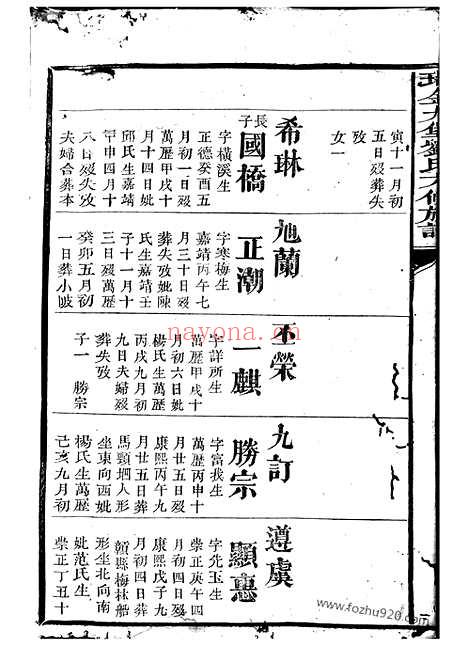 寅十一月初
五日歿葬失
攷
女一
希琳
長子
國橋
字橫溪生
正德癸酉五
月初一日歿
萬歷甲戌十
月十四日妣
邱氏生嘉靖
甲申四月十
八日歿失攷
夫婦合葬本
旭蘭
正潮
字寒梅生
嘉靖丙午七
月三十日歿
葬失攷妣陳
氏生嘉靖壬
子十一月十
三日歿萬歷
癸卯五月初
一日葬小陂
玉榮
一麒
字詳所生
萬歷甲戌十
月初六日妣
楊氏生萬歷
丙戌九月初
九日夫婦歿
葬失攷
子一 勝宗
九訂
勝宗
字富我生
萬歷丙申十
月廿五日歿
康熙丙午九
月廿五日葬
馬頸坝人形
坐東向西妣
楊氏生萬歷
己亥九月初
遵虞
顯惠
字先玉生
崇正庚午四
月初四日歿
康熙戊子九
月初四日葬
贛縣梅林船
形坐北向南
妣范氏生
崇正丁丑十
nayona.cn
www.fozhu920.com